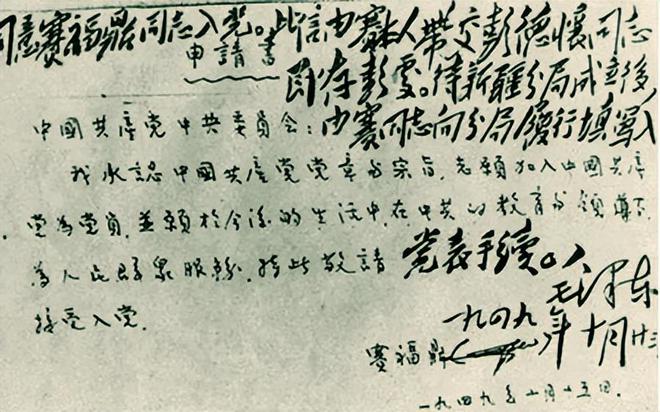 同意赛福鼎同志入党。此信由赛本人带交彭德懷同志
申請書
即存彭处。待新疆分局成立後,
中國共產党中共委員会:
由赛同志向分局履行填写入
我承認中國共產党党章与宗旨,志願加入中國共產
党為党員,並願於今後的生活中,在中共的教育与領導下
為人民群衆服務,特此敬請
党表手續。
接受入党。
毛泽东
一九四九年十月廿三
賽福鼎
一九四九年十月十五日.